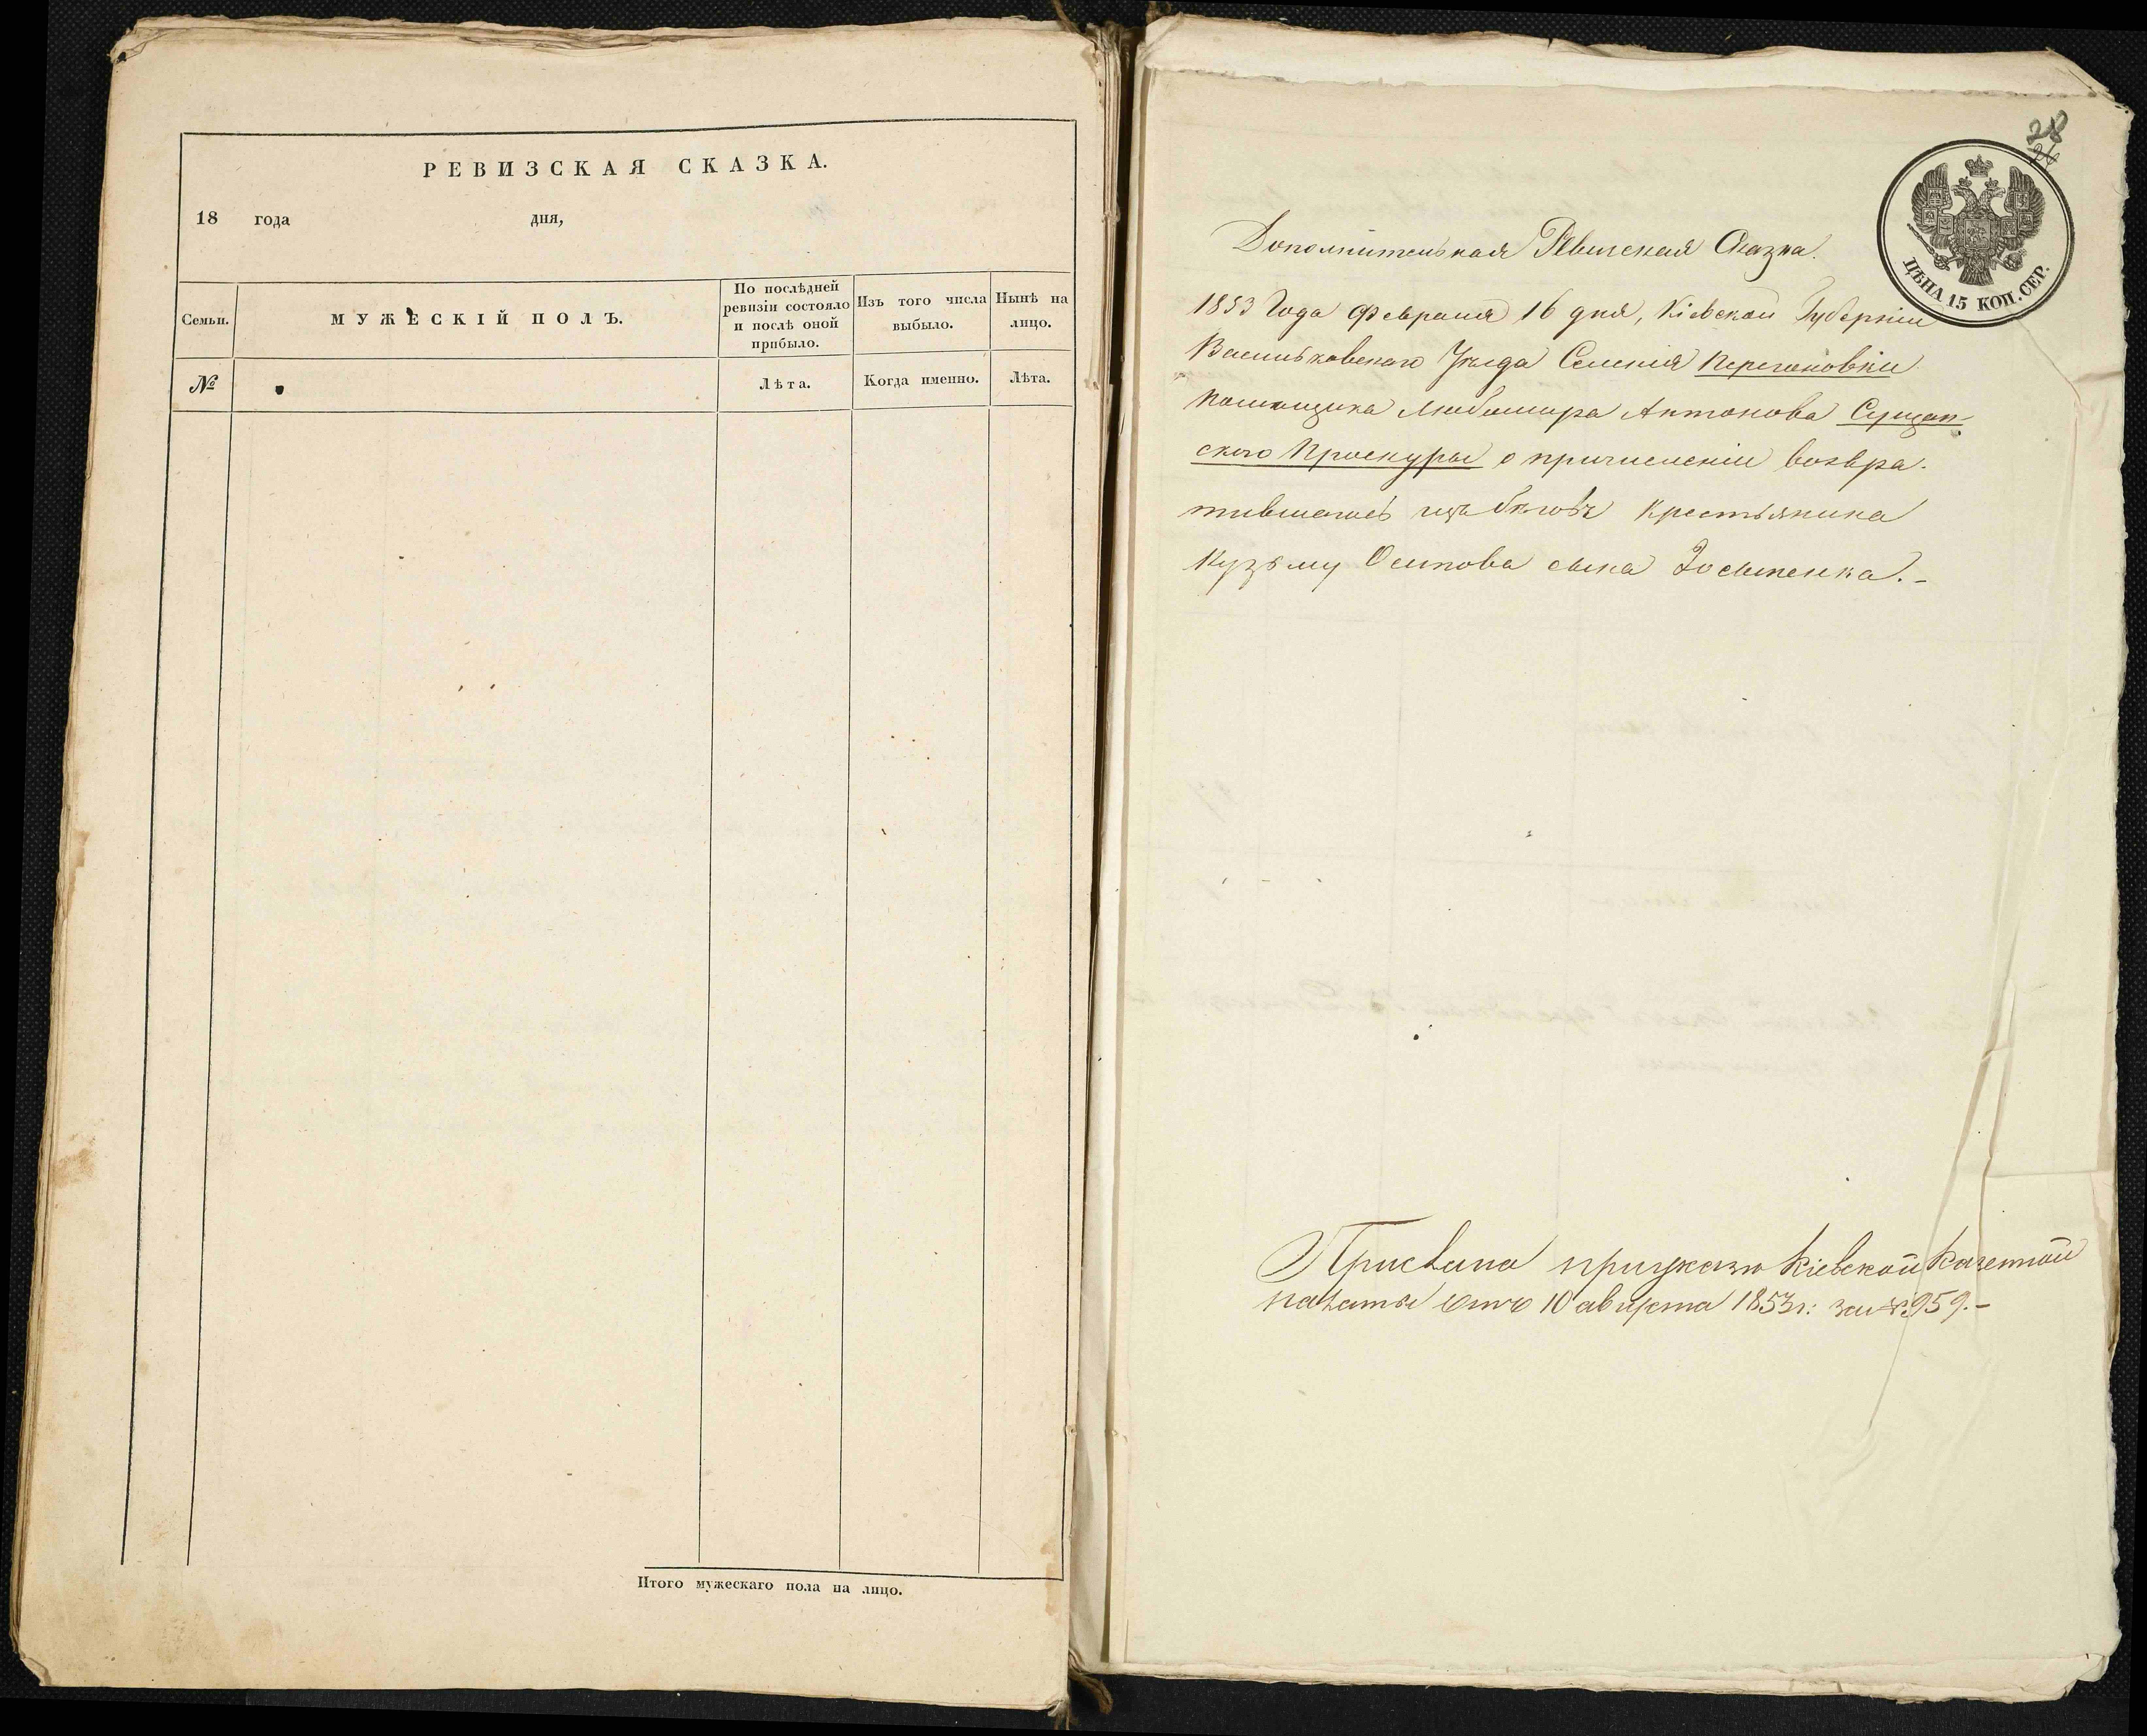 РЕВИЗСКАЯ СКАЗКА.
18 года дня,
Семьи.
МУЖЕСКІЙ ПОЛЪ.
По послѣдней
ревизіи состояло
и послѣ оной
прибыло.
Изъ того числа
выбыло.
Нынѣ на
лицо.
№
Лѣта.
Когда именно.
Лѣта.
Итого мужескаго пола на лицо.
28
26
ЦѢНА 15 КОП. СЕР.
Дополнительная Ревизская Сказка.
1853 Года Февраля 16 дня, Кіевской Губерніи
Васильковскаго Уѣзда Селенія Перегоновки
помѣщика Любомира Антонова Сущан
ского Проскуры о причисленіи возвра-
тившагось изъ бѣговъ крестьянина
Кузьму Осипова сына Зосименка.-
Прислана при указѣ Кіевской Казенной
палаты отъ 10 августа 1853 г: за № 959.-